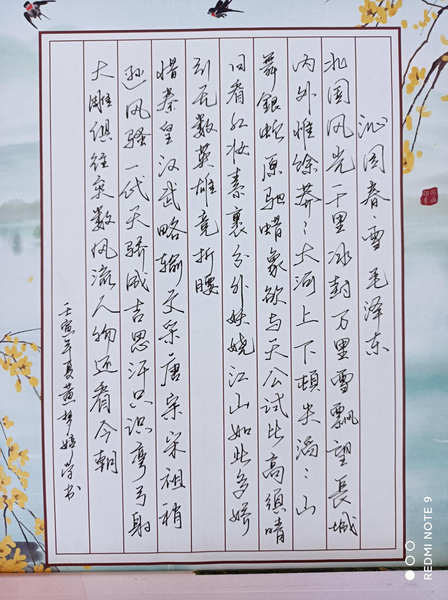 沁园春·雪 毛泽东
北国风光千里冰封万里雪飘望长城
内外惟馀莽〻大河上下顿失滔〻山
舞银蛇原驰蜡象欲与天公试比高须晴
日看红妆素裹分外妖娆江山如此多娇
引无数英雄竞折腰
惜秦皇汉武略输文采唐宗宋祖稍
逊风骚一代天骄成吉思汗只识弯弓射
大雕俱往矣数风流人物还看今朝
壬寅年夏黄梦婷学书
REDMI NOTE 9